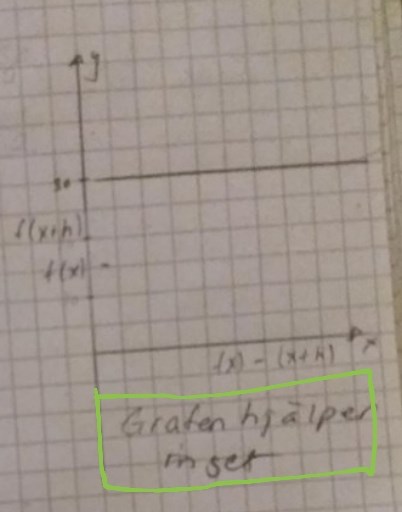 y
30
f(x+h)
f(x)
(x) - (x+h) x
Grafen hjälper
inget